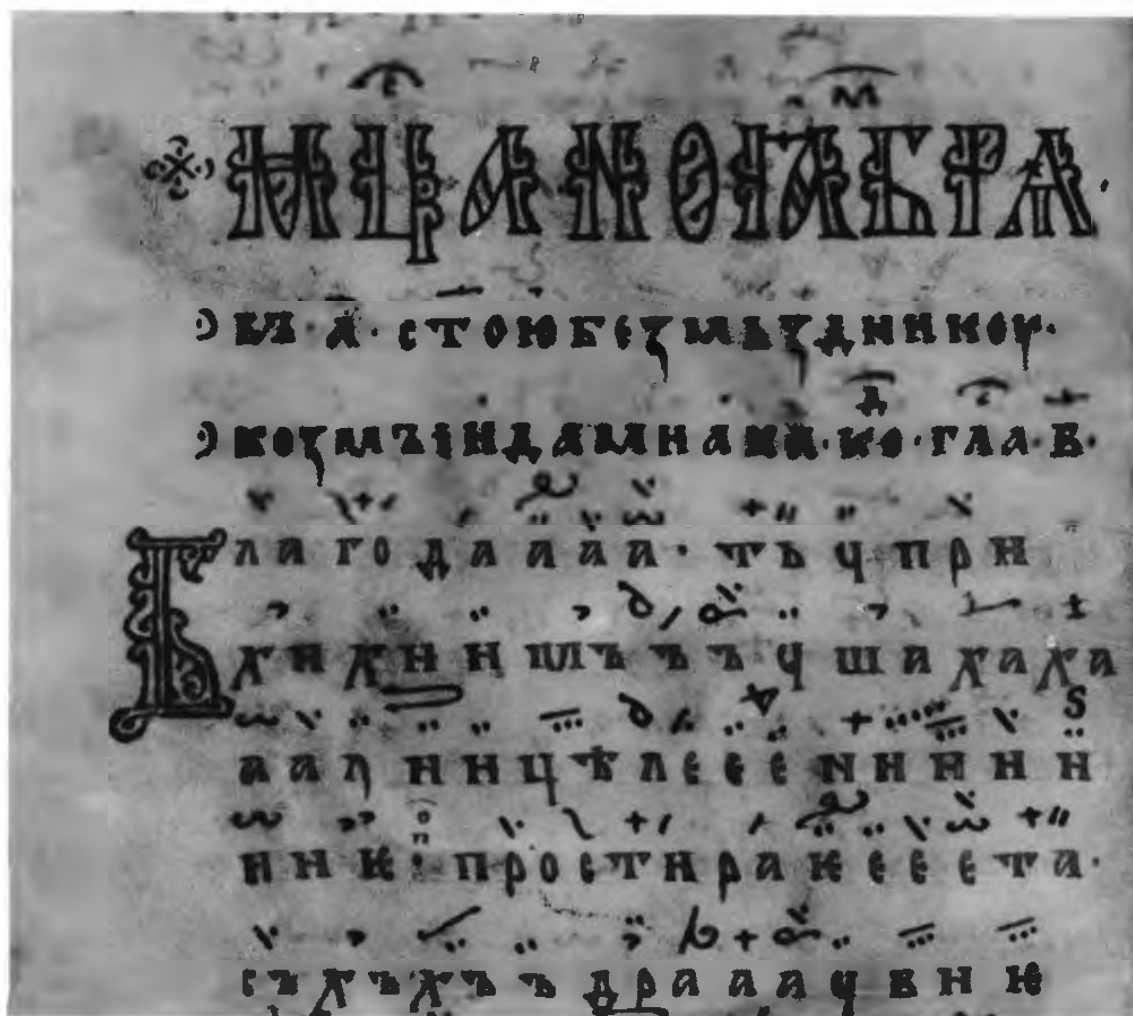 МЦⷭ҇АНОꙖⷨБРА·
въ·а·стоюбеꙁмьꙁдьникоу·
коꙁмъіидамиана·коⷣ·глаⷭ·в̄·
Благодаааа·тьчпри
хихииимъъъчшахаха
аачиицѣлееениииии
ииѥ:простираѥееета·
съхъхъъъдрааачвиѥ